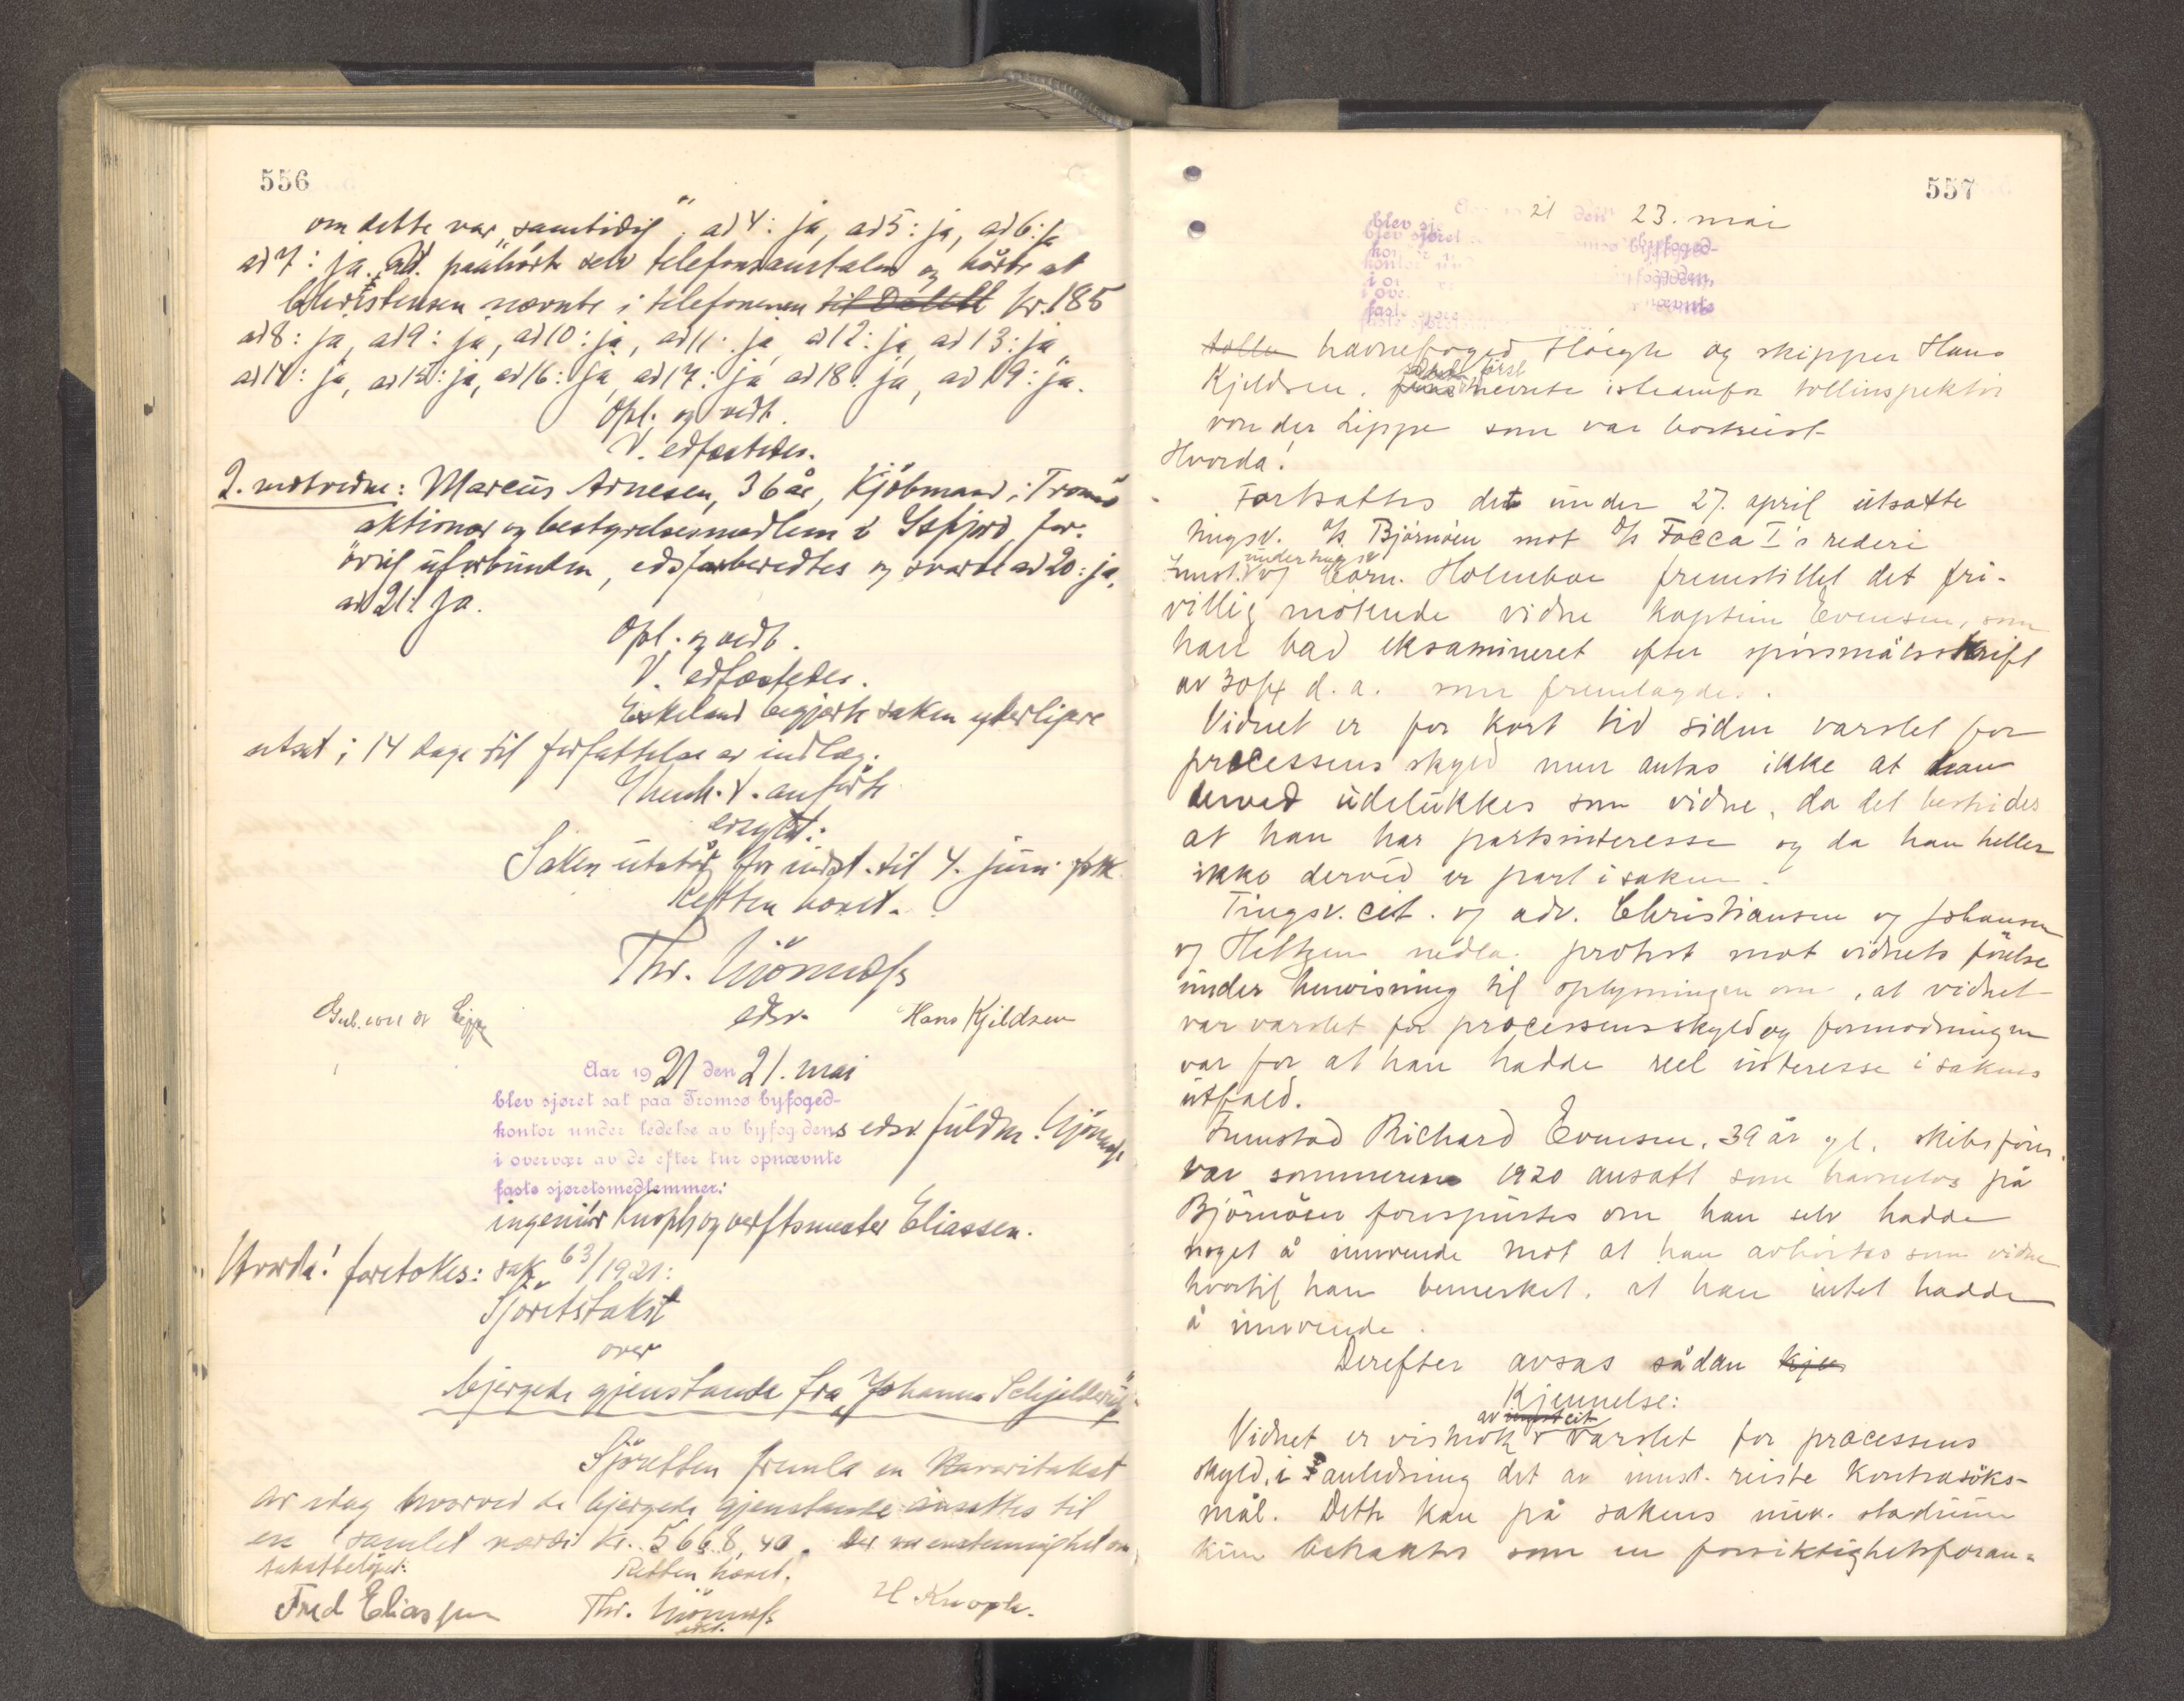 556
om dette var "samtidig". ad 4: ja, ad 5: ja, ad 6: ja
ad 7: ja. Vd. paahörte selv telefonsamtalen og hörte at
Christensen nævnte i telefonenen til kr. 185
ad 8: ja, ad 9: ja, ad 10: ja, ad 11: ja, ad 12: ja, ad 13: ja,
ad 14: ja, ad 15: ja, ad 16: ja, ad 17: ja, ad 18: ja, ad 19: ja.
Opl. og vedt.
V. edfæstedes.
2. motvidne: Marcus Arnesen, 36 år, Kjöbmand i Tromsö
aktionær og bestyrelsesmedlem i Isfjord, for-
övrig uforbunden, edsforberedtes og svarte ad 20: ja,
ad 21: ja.
Opl. og vedt.
V. edfæstedes.
Eskeland begjærte saken yderligere
utsat i 14 dage til forfattelse av indlæg.
anförte
Saken utstår for indst. til 4. juni
Retten hævet.
Thr.
edsv.
Hans Kjeldsen
Aar 1921 den 21. mai
blev sjøret sat paa Tromsø byfoged-
kontor under ledelse av byfogdens edsv. fuldm.
i overvær av de efter tur opnævnte
faste sjøretsmedlemmer:
ingeniör Knoph og verftsmester Eliassen.
Hvorda! foretokes: sak 63/1921:
Sjöretstakst
over
bjergede gjenstande fra "Johanna Schjelderup".
Sjöretten fremla en Havaritakst
av idag hvorved de bjergede gjenstande ansattes til
en samlet værdi kr. 5668,40. Der var enstemmighet om
takstbelöpet.
Retten hævet.
Fred Eliassen
Thr.
edsv.
H Knoph.
557
21 den 23. mai
blev sjøret
byfoged-
kontor
byfogden,
i ove
nævnte
faste sjøre
tolle havnefoged Høegh og skipper Hans
Kjeldsen. först nevnte istedenfor tollinspektör
von der Lippe som var bortreist
Hvorda!
Fortsattes det under 27. april utsatte
tingsv. A/S Björnöen mot A/S Focca I's rederi
under tingsv.
Innst. og Corn. Holmboe fremstillet det fri-
villig mötende vidne kaptein Evensen, som
han bad eksamineret efter spörsmålsskrift
av 30/4 d.a. som fremlagdes.
Vidnet er for kort tid siden varslet for
processens skyld men antas ikke at han
derved udelukkes som vidne, da det bestrides
at han har partsinteresse og da han heller
ikke derved er part i saken.
Tingsv. cit. og adv. Christiansen og Johansen
og Heltzen nedla protest mot vidnets förelse
under henvisning til oplysningen om, at vidnet
var varslet for processens skyld og formodningen
var for at han hadde reel interesse i sakens
utfald.
Fremstod Richard Evensen, 39 år gl. skibsförer.
var sommeren 1920 ansatt som havnelos på
Björnöen forespurtes om han selv hadde
noget å innvende mot at han avhörtes som vidne
hvortil han bemerket, at han intet hadde
å innvende.
Derefter avsas sådan kjen
Kjennelse:
av innst cit
Vidnet er vistnok varslet for processens
skyld, i anledning det av innst. reiste kontrasöks-
mål. Dette kan på sakens nuv. stadium
kun betraktes som en forsiktighetsforan-